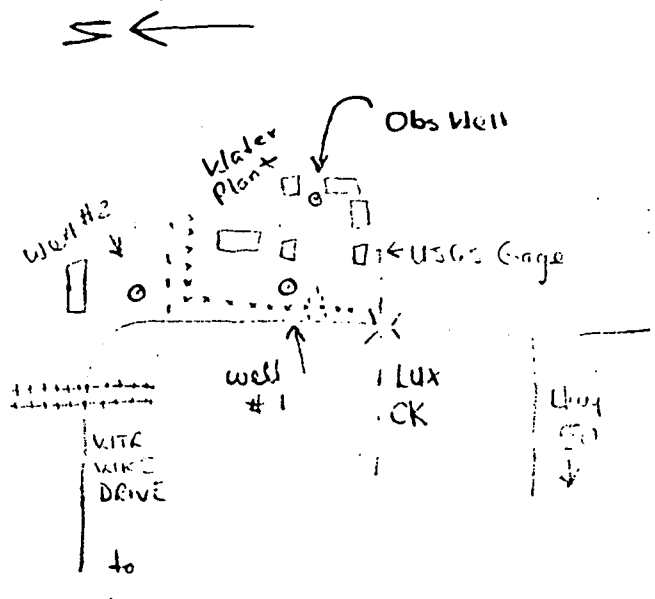 N
Obs Well
Water
Plant
Well #2
USGS Gage
Well
#1
LUX
CK
Hwy
WTR
WKS
DRIVE
to